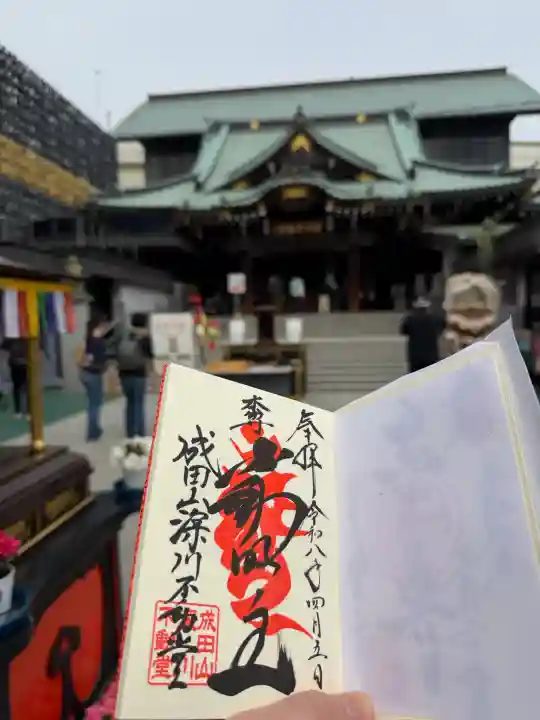 奉拝 令和八年四月五日
本尊 不動明王
成田山深川不動堂
成田山
深川
不動堂